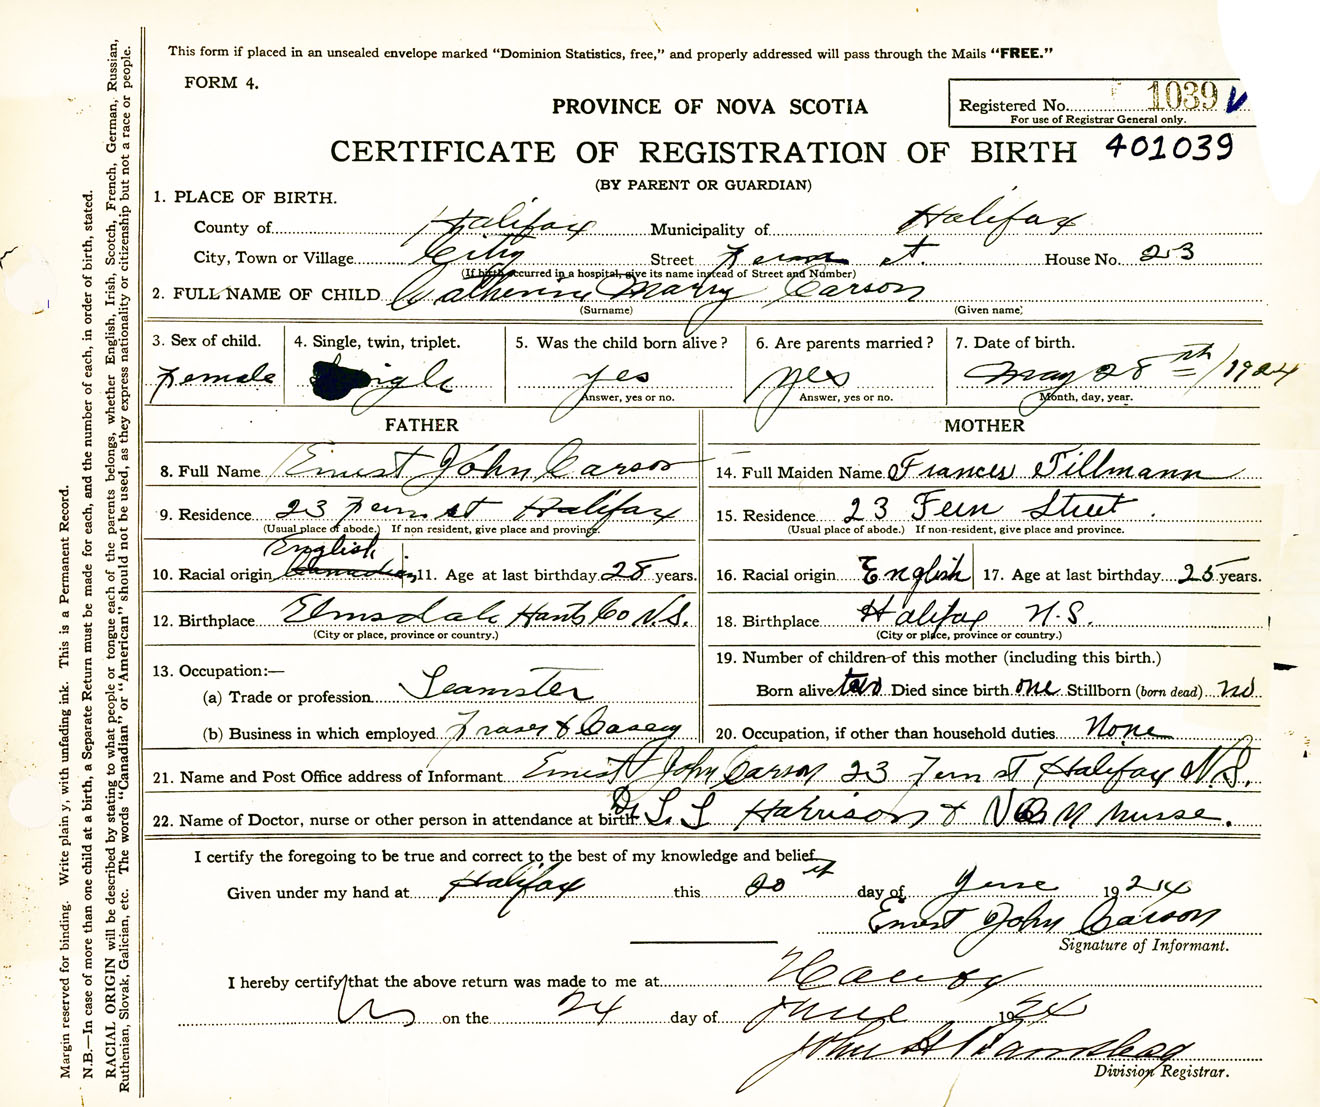 This form if placed in an unsealed envelope marked "Dominion Statistics, free," and properly addressed will pass through the Mails "FREE."
FORM 4.
PROVINCE OF NOVA SCOTIA
Registered No. 1039
For use of Registrar General only.
CERTIFICATE OF REGISTRATION OF BIRTH 401039
(BY PARENT OR GUARDIAN)
1. PLACE OF BIRTH.
County of Halifax Municipality of Halifax
City, Town or Village City Street Fern st House No. 23
(If birth occurred in a hospital, give its name instead of Street and Number)
2. FULL NAME OF CHILD Catherine Mary Carson
(Surname) (Given name)
3. Sex of child. 4. Single, twin, triplet. 5. Was the child born alive? 6. Are parents married? 7. Date of birth.
Female Single yes yes May 28th/1924
Answer, yes or no. Answer, yes or no. Month, day, year.
FATHER MOTHER
8. Full Name Ernest John Carson 14. Full Maiden Name Frances Tillmann
9. Residence 23 Fern st Halifax 15. Residence 23 Fern Street.
(Usual place of abode.) If non resident, give place and province. (Usual place of abode.) If non-resident, give place and province.
English
10. Racial origin Canadian 11. Age at last birthday 28 years. 16. Racial origin English 17. Age at last birthday 25 years.
12. Birthplace Elmsdale Hants Co N.S. 18. Birthplace Halifax N.S.
(City or place, province or country.) (City or place, province or country.)
13. Occupation:— 19. Number of children of this mother (including this birth.)
(a) Trade or profession Teamster Born alive two Died since birth one Stillborn (born dead) no
(b) Business in which employed Fraser & Casey 20. Occupation, if other than household duties None
21. Name and Post Office address of Informant Ernest John Carson 23 Fern st Halifax N.S.
22. Name of Doctor, nurse or other person in attendance at birth Dr Harrison & nurse.
I certify the foregoing to be true and correct to the best of my knowledge and belief
Given under my hand at Halifax this 20 day of June 1924
Ernest John Carson
Signature of Informant.
I hereby certify that the above return was made to me at
on the 24 day of June 1924
John
Division Registrar.
Margin reserved for binding. Write plain y, with unfading ink. This is a Permanent Record.
N.B.—In case of more than one child at a birth, a Separate Return must be made for each, and the number of each, in order of birth, stated.
RACIAL ORIGIN will be described by stating to what people or tongue each of the parents belongs, whether English, Irish, Scotch, French, German, Russian,
Ruthenian, Slovak, Galician, etc. The words "Canadian" or "American" should not be used, as they express nationality or citizenship but not a race or people.